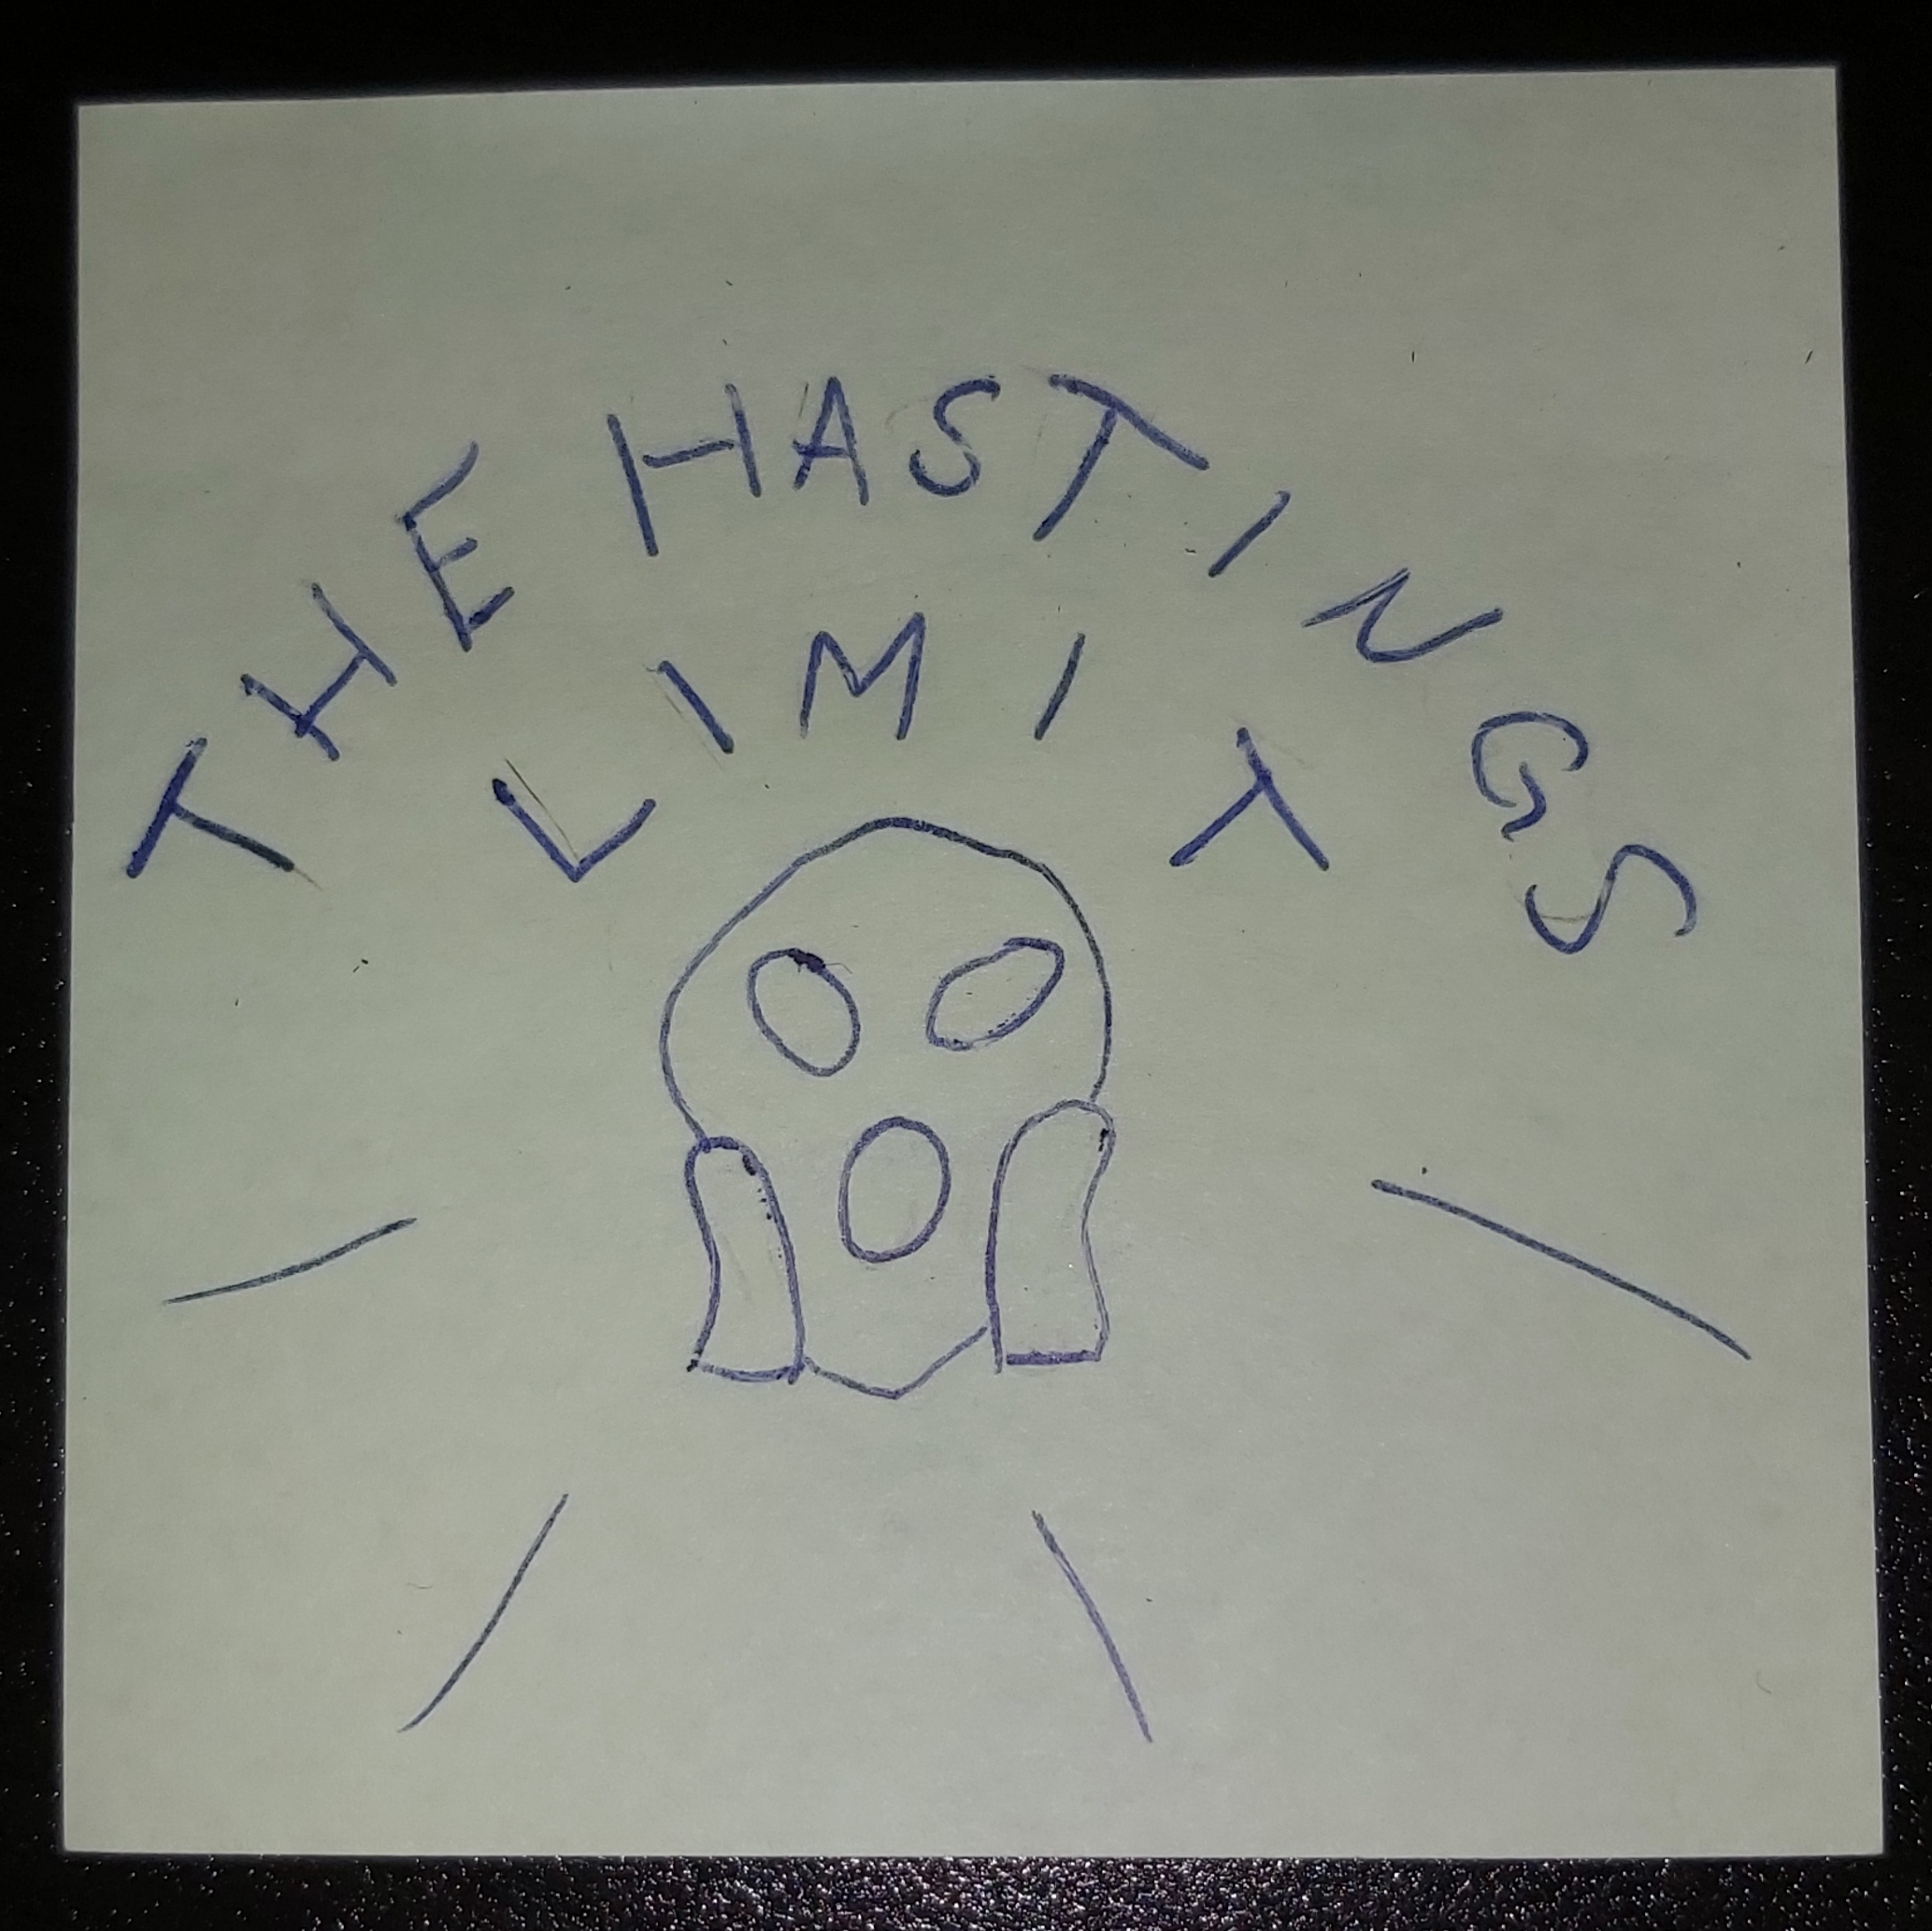 THE HASTINGS
LIMIT